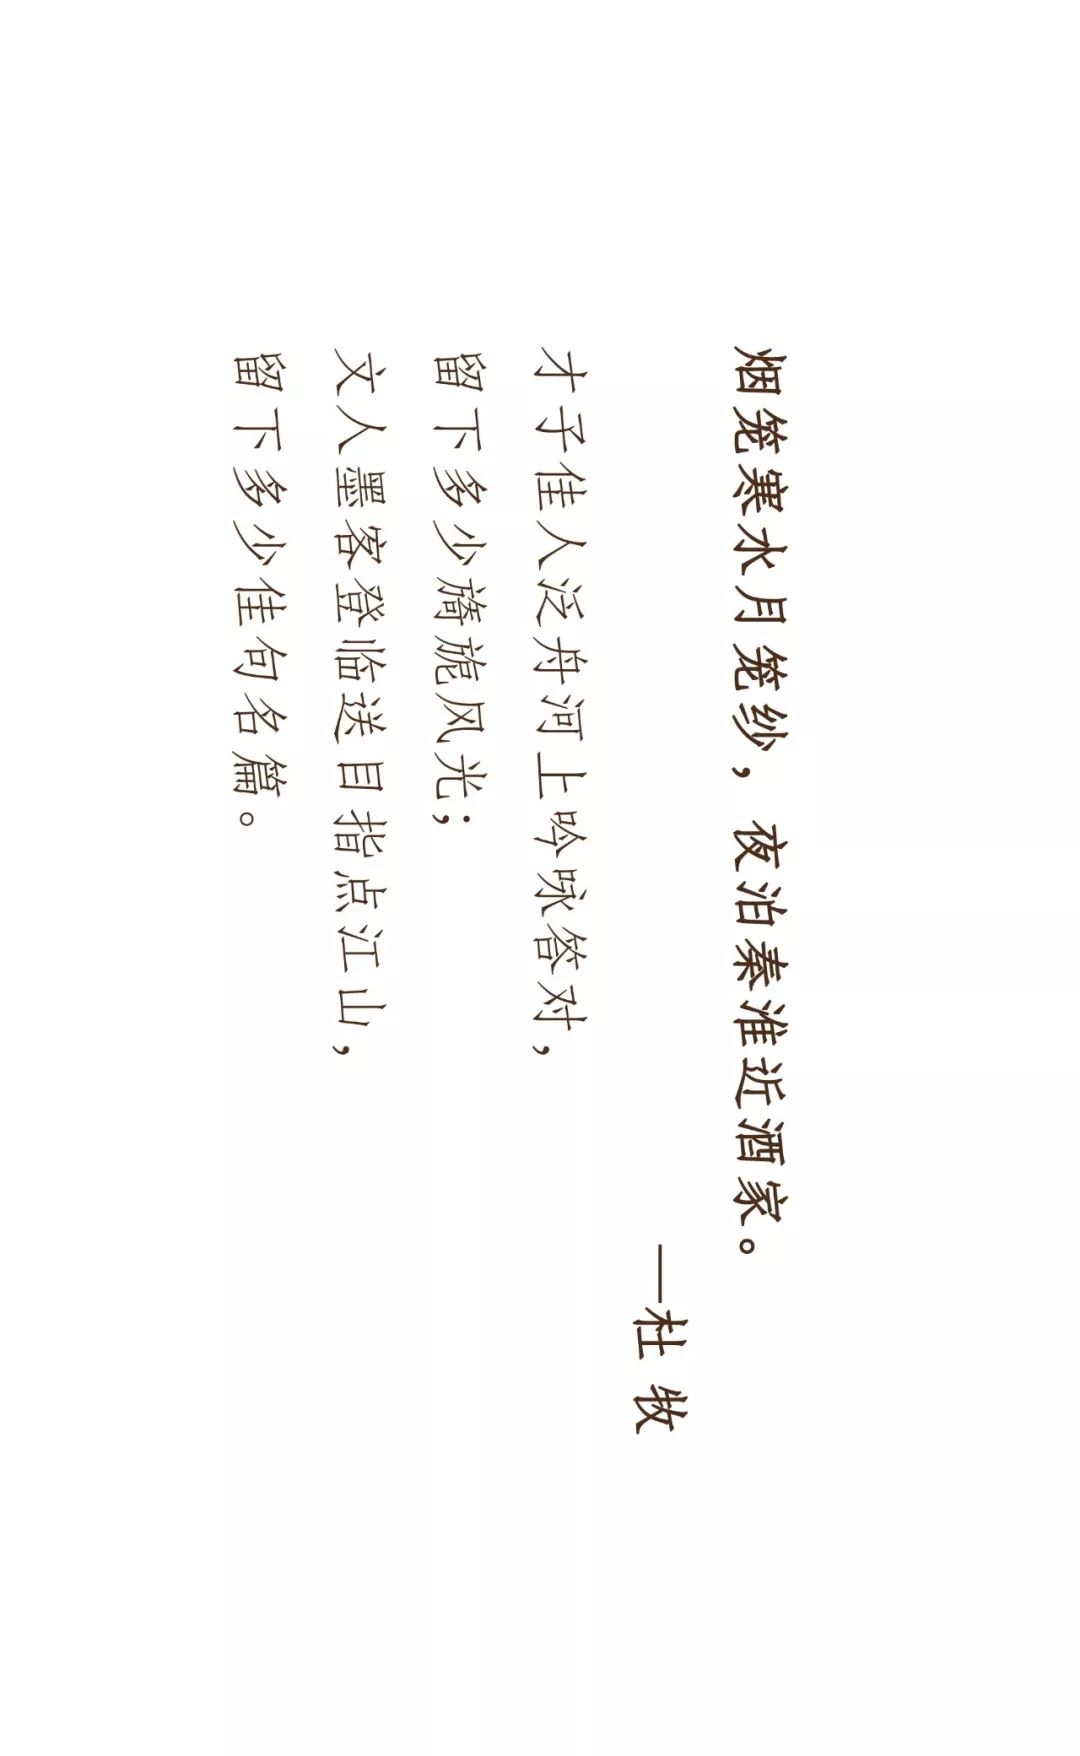 烟笼寒水月笼纱，夜泊秦淮近酒家。
—杜牧
才子佳人泛舟河上吟咏答对，
留下多少旖旎风光；
文人墨客登临送目指点江山，
留下多少佳句名篇。